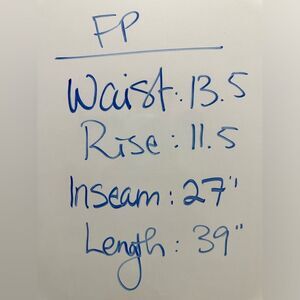 FP
Waist: 13.5
Rise: 11.5
Inseam: 27"
Length: 39"